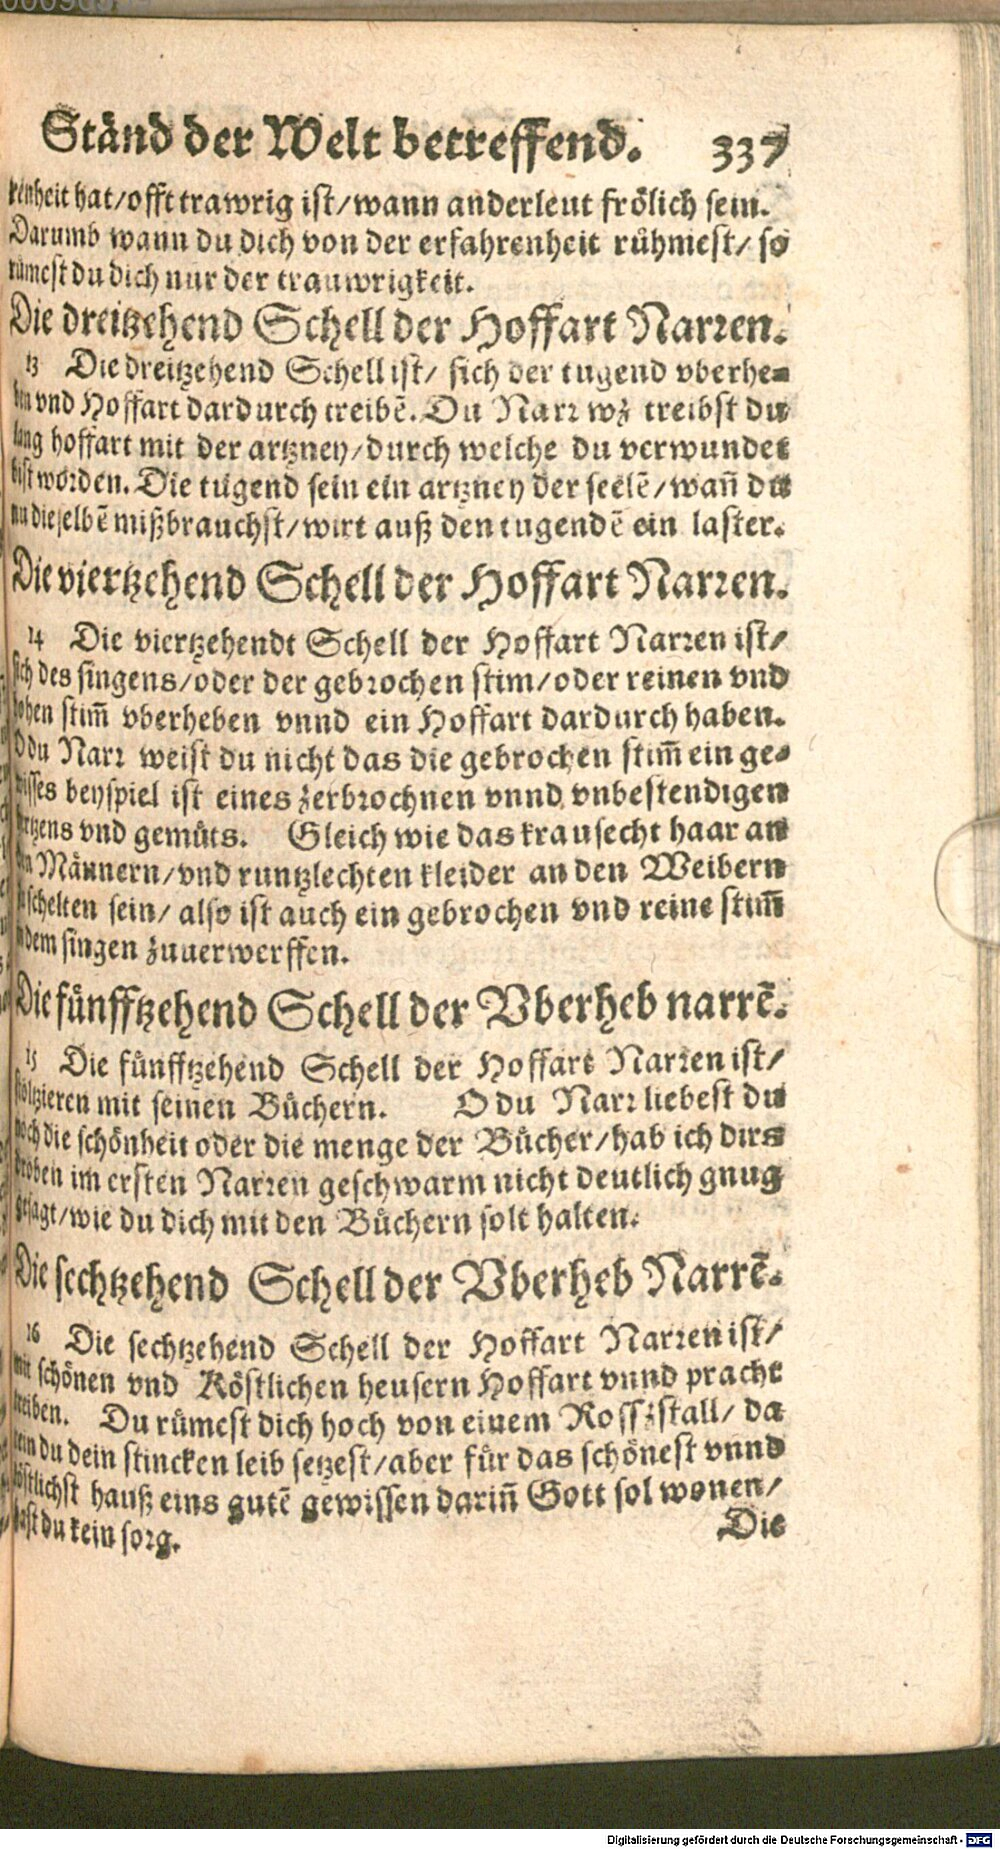 Ständ der Welt betreffend. 337
kenheit hat/offt trawrig ist/wann anderleut frölich sein.
Darumb wann du dich von der erfahrenheit rühmest/ so
rümest du dich nur der trauwrigkeit.
Die dreitzehend Schell der Hoffart Narren.
13 Die dreitzehend Schell ist/ sich der tugend vberhe-
ben vnd Hoffart dardurch treibē. Du Narr wz treibst du
lang hoffart mit der artzney/durch welche du verwundet
bist worden. Die tugend sein ein artzney der seelē/wañ du
nu dieselbē mißbrauchst/wirt auß den tugendē ein laster.
Die viertzehend Schell der Hoffart Narren.
14 Die viertzehendt Schell der Hoffart Narren ist/
sich des singens/oder der gebrochen stim/oder reinen vnd
hohen stim̃ vberheben vnnd ein Hoffart dardurch haben.
O du Narr weist du nicht das die gebrochen stim̃ ein ge-
wisses beyspiel ist eines zerbrochnen vnnd vnbestendigen
hertzens vnd gemüts. Gleich wie das krausecht haar an
den Männern/vnd runtzlechten kleider an den Weibern
zuschelten sein/ also ist auch ein gebrochen vnd reine stim̃
in dem singen zuuerwerffen.
Die fünfftzehend Schell der Vberheb narrē.
15 Die fünfftzehend Schell der Hoffart Narren ist/
stoltzieren mit seinen Büchern. O du Narr liebest du
noch die schönheit oder die menge der Bücher/hab ich dirs
droben im ersten Narren geschwarm nicht deutlich gnug
gesagt/wie du dich mit den Büchern solt halten.
Die sechtzehend Schell der Vberheb Narrē.
16 Die sechtzehend Schell der Hoffart Narren ist/
mit schönen vnd Köstlichen heusern Hoffart vnnd pracht
treiben. Du rümest dich hoch von einem Rosszstall/ da
rein du dein stincken leib setzest/aber für das schönest vnnd
köstlichst hauß eins gutē gewissen dariñ Gott sol wonen/
hast du kein sorg.
Die
Digitalisierung gefördert durch die Deutsche Forschungsgemeinschaft - DFG